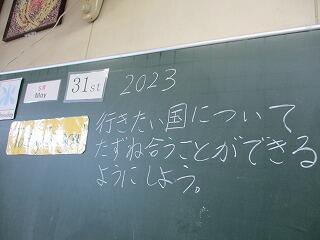 5月
May
31st
2023
水
行きたい国について
たずね合うことができる
ようにしよう。